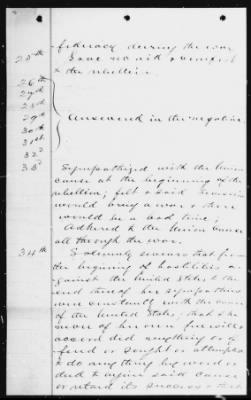 federacy during the war.
25th Gave no aid & comfort
to the rebellion.
26th
27th
28th
29th Answered in the negative
30th
31st
32d
33d Sympathized with the Union
cause at the beginning of the
rebellion; felt & said
would bring a war & there
would be a bad time;
Adhered to the Union cause
all through the war.
34th Solemnly swears that from
the beginning of hostilities a-
gainst the United States to the
end thereof his sympathies
were constantly with the cause
of the United States; that he
never of his own free will &
accord did anything or of-
fered or sought or attempted
to do anything by word or
deed to injure said cause
or retard its success & that